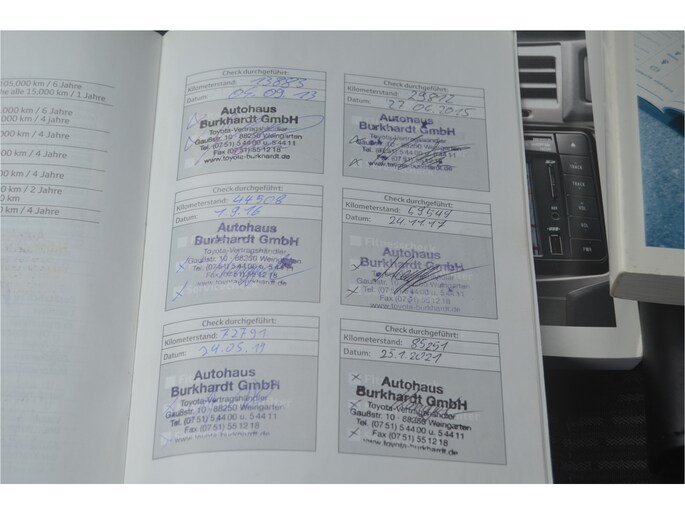 105,000 km / 6 Jahre
alle 15,000 km / 1 Jahre
000 km / 6 Jahre
000 km / 4 jahre
km / 4 Jahre
000 km / 4 Jahre
km / 2 Jahre
0 km
km / 4 Jahre
Check durchgeführt:
Kilometerstand: 13885
Datum: 05.09.13
Autohaus
Burkhardt GmbH
Toyota-Vertragshändler
Gaußstr. 10 - 88250 Weingarten
Tel. (07 51) 5 44 00 u. 5 44 11
Fax (07 51) 55 12 18
www.toyota-burkhardt.de
Check durchgeführt:
Kilometerstand: 29812
Datum: 22.06.2015
Autohaus
Burkhardt GmbH
Toyota-Vertragshändler
Gaußstr. 10 - 88250 Weingarten
Tel. (07 51) 5 44 00 u. 5 44 11
Fax (07 51) 55 12 18
www.toyota-burkhardt.de
Check durchgeführt:
Kilometerstand: 44508
Datum: 1.9.16
Autohaus
Burkhardt GmbH
Toyota-Vertragshändler
Gaußstr. 10 - 88250 Weingarten
Tel. (07 51) 5 44 00 u. 5 44 11
Fax (07 51) 55 12 18
www.toyota-burkhardt.de
Check durchgeführt:
Kilometerstand: 69549
Datum: 24.11.17
Fitnesscheck
Autohaus
Burkhardt GmbH
Toyota-Vertragshändler
Gaußstr. 10 - 88250 Weingarten
Tel. (07 51) 5 44 00 u. 5 44 11
Fax (07 51) 55 12 18
www.toyota-burkhardt.de
Check durchgeführt:
Kilometerstand: 72791
Datum: 24.05.19
Autohaus
Burkhardt GmbH
Toyota-Vertragshändler
Gaußstr. 10 - 88250 Weingarten
Tel. (07 51) 5 44 00 u. 5 44 11
Fax (07 51) 55 12 18
www.toyota-burkhardt.de
Check durchgeführt:
Kilometerstand: 85251
Datum: 25.1.2021
Autohaus
Burkhardt GmbH
Toyota-Vertragshändler
Gaußstr. 10 - 88250 Weingarten
Tel. (07 51) 5 44 00 u. 5 44 11
Fax (07 51) 55 12 18
www.toyota-burkhardt.de
TRACK
TRACK
PWR